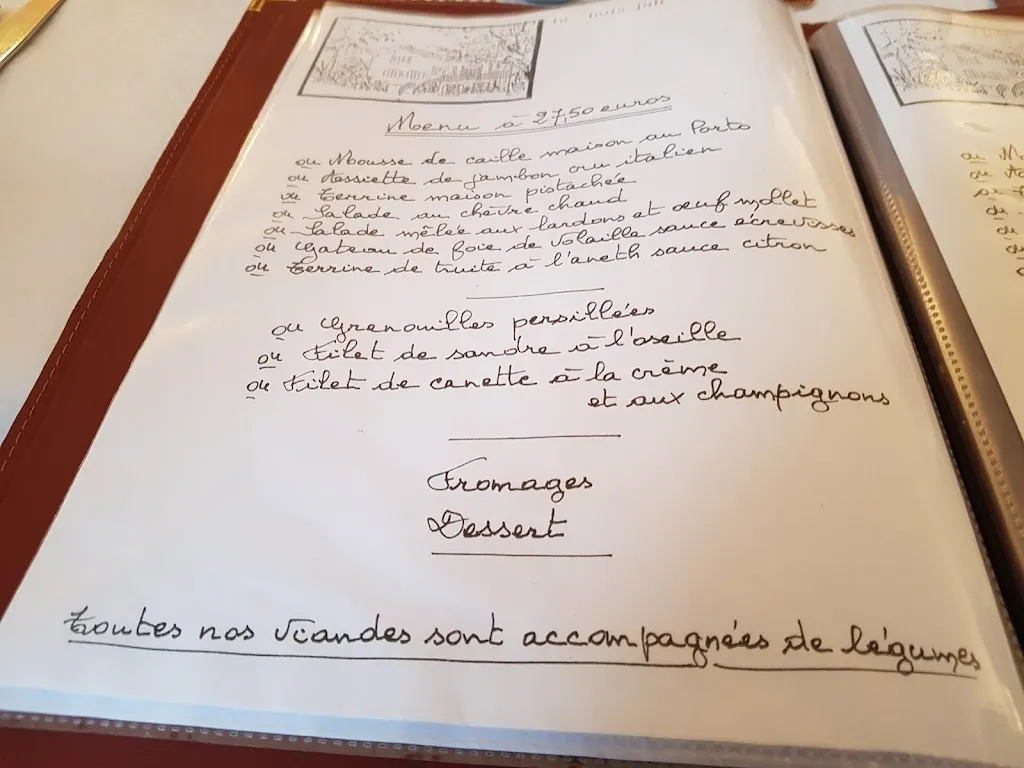 Menu à 27,50 euros
ou Mousse de caille maison au Porto
ou Assiette de jambon cru italien
ou Terrine maison pistachée
ou Salade au chèvre chaud
ou Salade mêlée aux lardons et œuf mollet
ou Gateau de foie de volaille sauce écrevisses
ou Terrine de truite à l'aneth sauce citron
ou Grenouilles persillées
ou Filet de sandre à l'oseille
ou Filet de canette à la crème
et aux champignons
Fromages
Dessert
Toutes nos viandes sont accompagnées de légumes
ou
ou
ou
ou
ou
ou